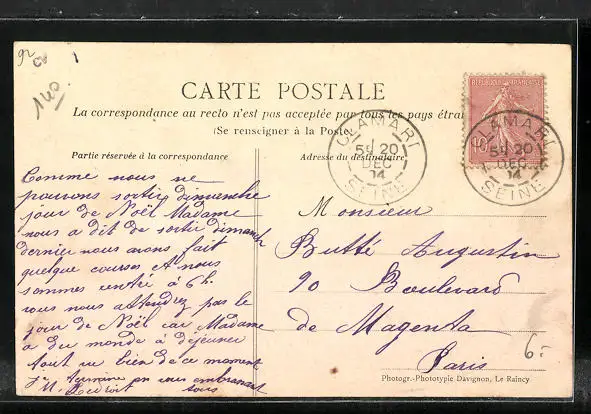 92
140
CARTE POSTALE
La correspondance au recto n'est pas acceptée par tous les pays étran
(Se renseigner à la Poste)
Partie réservée à la correspondance
Adresse du destinataire
CLAMART
5E 20
DEC
14
SEINE
CLAMART
5E 20
DEC
14
SEINE
REPUBLIQUE FRANÇAISE
Comme nous ne
pouvons sortir dimanche
jour de Noël Madame
nous a dit de sortir dimanch
dernier nous avons fait
quelque courses et nous
sommes rentré à 6h.
vous nous attendez pas le
jour de Noël car Madame
a du monde à déjeuner
tout va bien de ce moment
Je termine en vous embrassant
tous
Monsieur
Butté Augustin
90 Boulevard
de Magenta
Paris
6-
Photogr.-Phototypie Davignon, Le Raincy